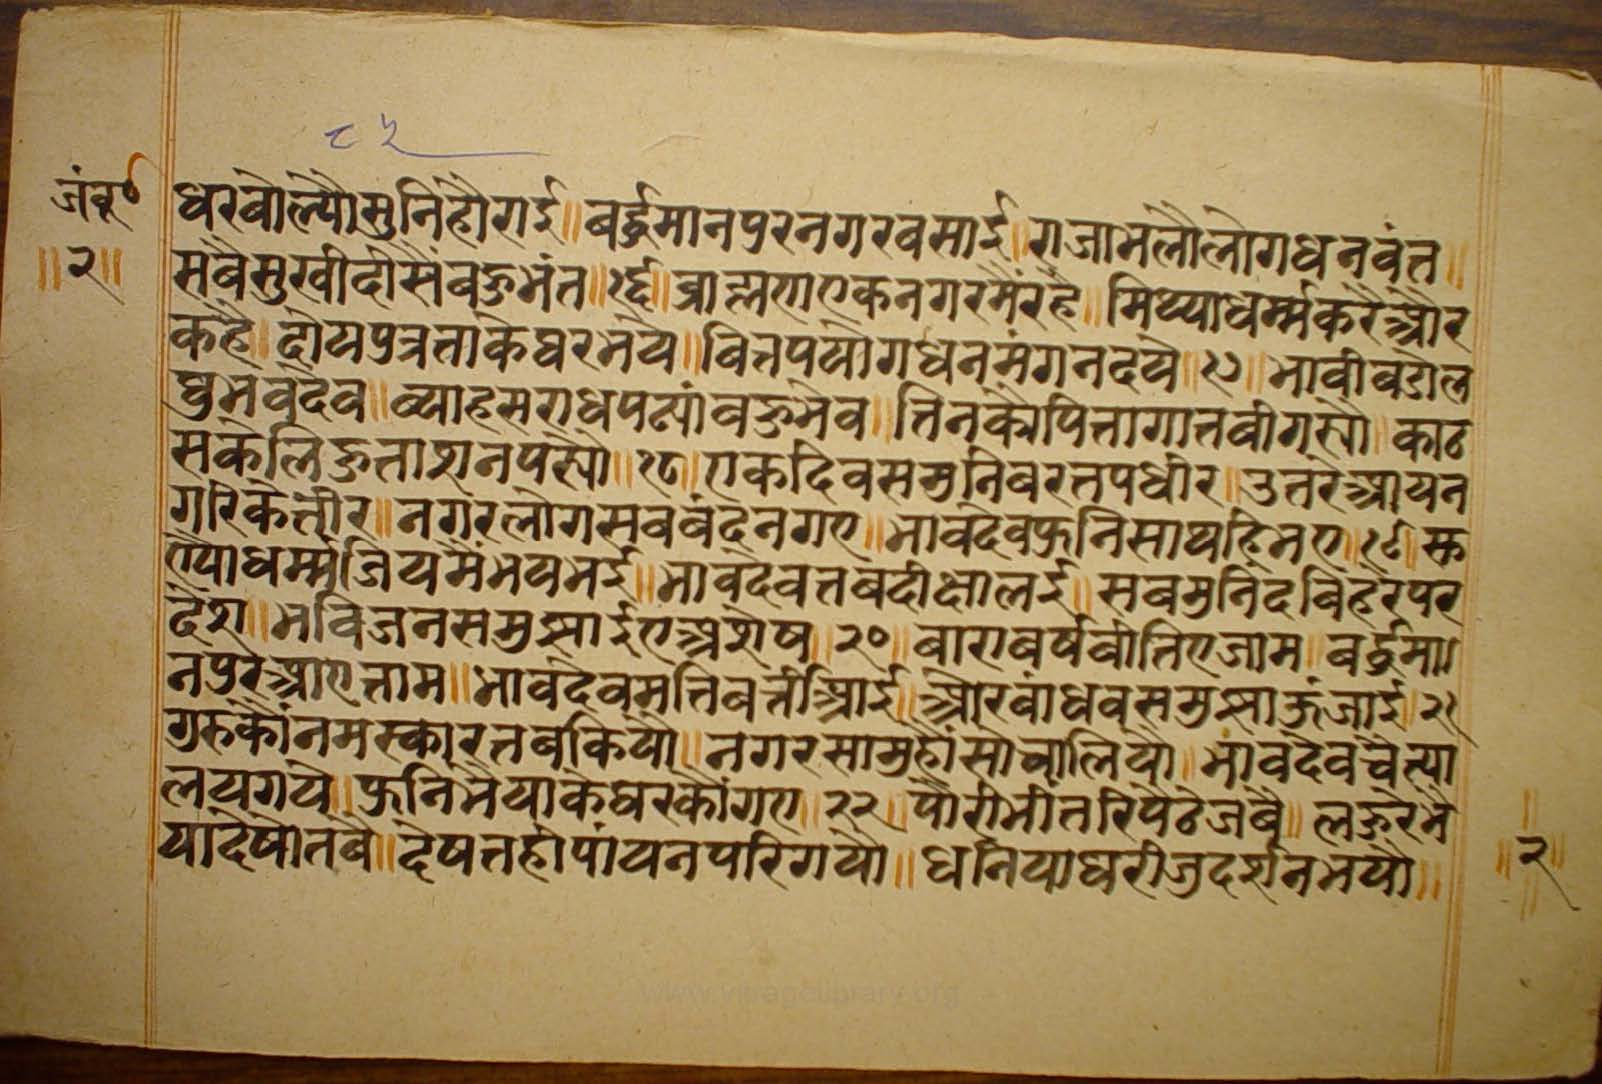 ८५
जंबू०
॥२॥
धरबोल्यौसुनिहौराई॥बर्द्धमानपुरनगरवसाई॥राजाभलौलोगधनवंत॥
सबैसुखीदीसैंबहुभंत॥१६॥ब्राह्मणएकनगरमैंरहै॥मिथ्याधर्म्मकरैऔर
कहै॥दोयपुत्रताकेघरभये॥वित्तपयोगर्धनमंगनदये॥१७॥भावीबडोल
घुभवदेव॥व्याहसराधपढ्यांबहुभेव॥तिनकौपितागातबीगस्यो॥काठ
सकेलिहुताशनपस्यो॥१८॥एकदिवसमुनिबरतपधीर॥उतरेआयन
गरिकेतीर॥नगरलोगसबबंदनगए॥भावदेवफुनिसाथहिभए॥१९॥सु
ण्योधर्म्मजियमेंभयभई॥भावदेवतबदीक्षालई॥सबमुनिंदबिहरेपर
देश॥भविजनसमुझाईएअशेष॥२०॥बाराबर्षबीतिएजाम॥बर्द्धमा
नपुरआएताम॥भावदेवमतिवंतीआई॥औरबांधवसमुझाऊंजाई॥२१
गुरुकौंनमस्कारतबकियौ॥नगरसामुहौंसोचालियौ॥भावदेवचैत्या
लयगये॥फुनिभैयाकेघरकौंगए॥२२॥पौरीभीतरिपैठेजबै॥लहुरेभै
यादेषोतबै॥देषतहीपांयनपरिगयौ॥धनियाघरीजुदर्शनभयौ॥
॥२॥
www.vitragelibrary.org